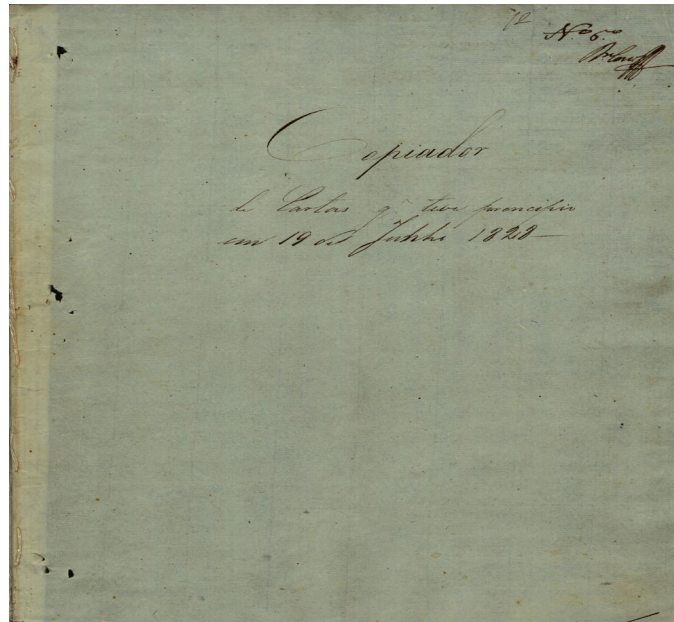 12
Nº 6º
Copiador
de Cartas q̃ teve principio
em 19 de Junho 1828